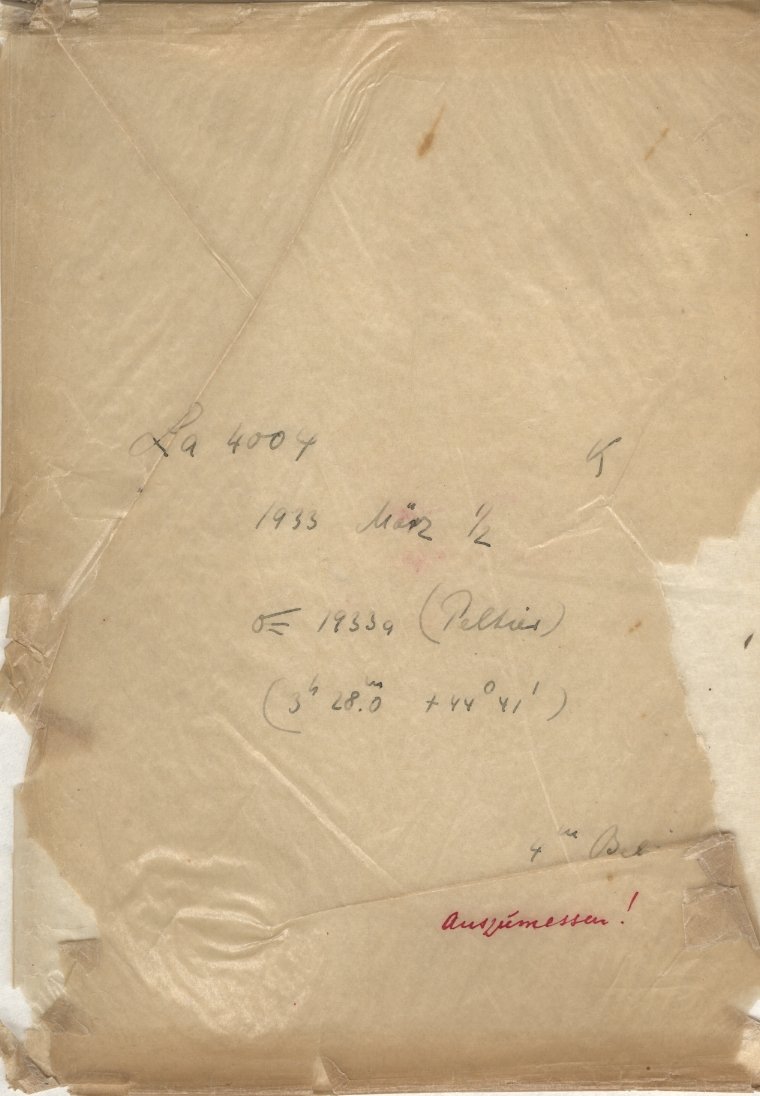 La 4004 K
1933 März 1/2
☄ 1933a (Peltier)
(3ʰ 28.ᵐ0 +44° 41')
4ᵐ Bel.
Auszumessen!